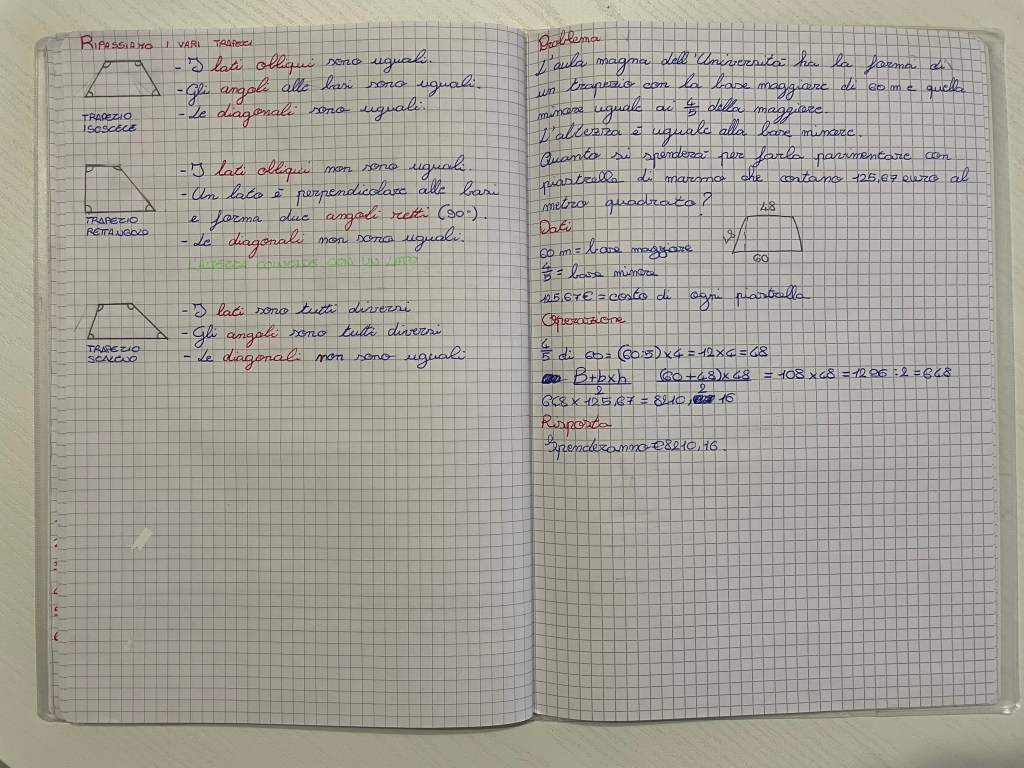 RIPASSIAMO I VARI TRAPEZI
- I lati obliqui sono uguali.
- Gli angoli alle basi sono uguali.
- Le diagonali sono uguali.
TRAPEZIO
ISOSCELE
- I lati obliqui non sono uguali.
- Un lato è perpendicolare alle basi
e forma due angoli retti (90°).
- Le diagonali non sono uguali.
L'ALTEZZA COINCIDE CON UN LATO
TRAPEZIO
RETTANGOLO
- I lati sono tutti diversi
- Gli angoli sono tutti diversi
- Le diagonali non sono uguali
TRAPEZIO
SCALENO
Problema
L'aula magna dell'Università ha la forma di
un trapezio con la base maggiore di 60 m e quella
minore uguale ai 4/5 della maggiore.
L'altezza è uguale alla base minore.
Quanto si spenderà per farla pavimentare con
piastrelle di marmo che costano 125,67 euro al
metro quadrato?
48
60
Dati
60 m = base maggiore
4/5 = base minore
125,67€ = costo di ogni piastrella
Operazione
4/5 di 60 = (60:5) x 4 = 12 x 4 = 48
B+b x h / 2 (60 + 48) x 48 / 2 = 108 x 48 = 1296 : 2 = 648
648 x 125,67 = 8210, 16
Risposta
Spenderanno €8210,16.